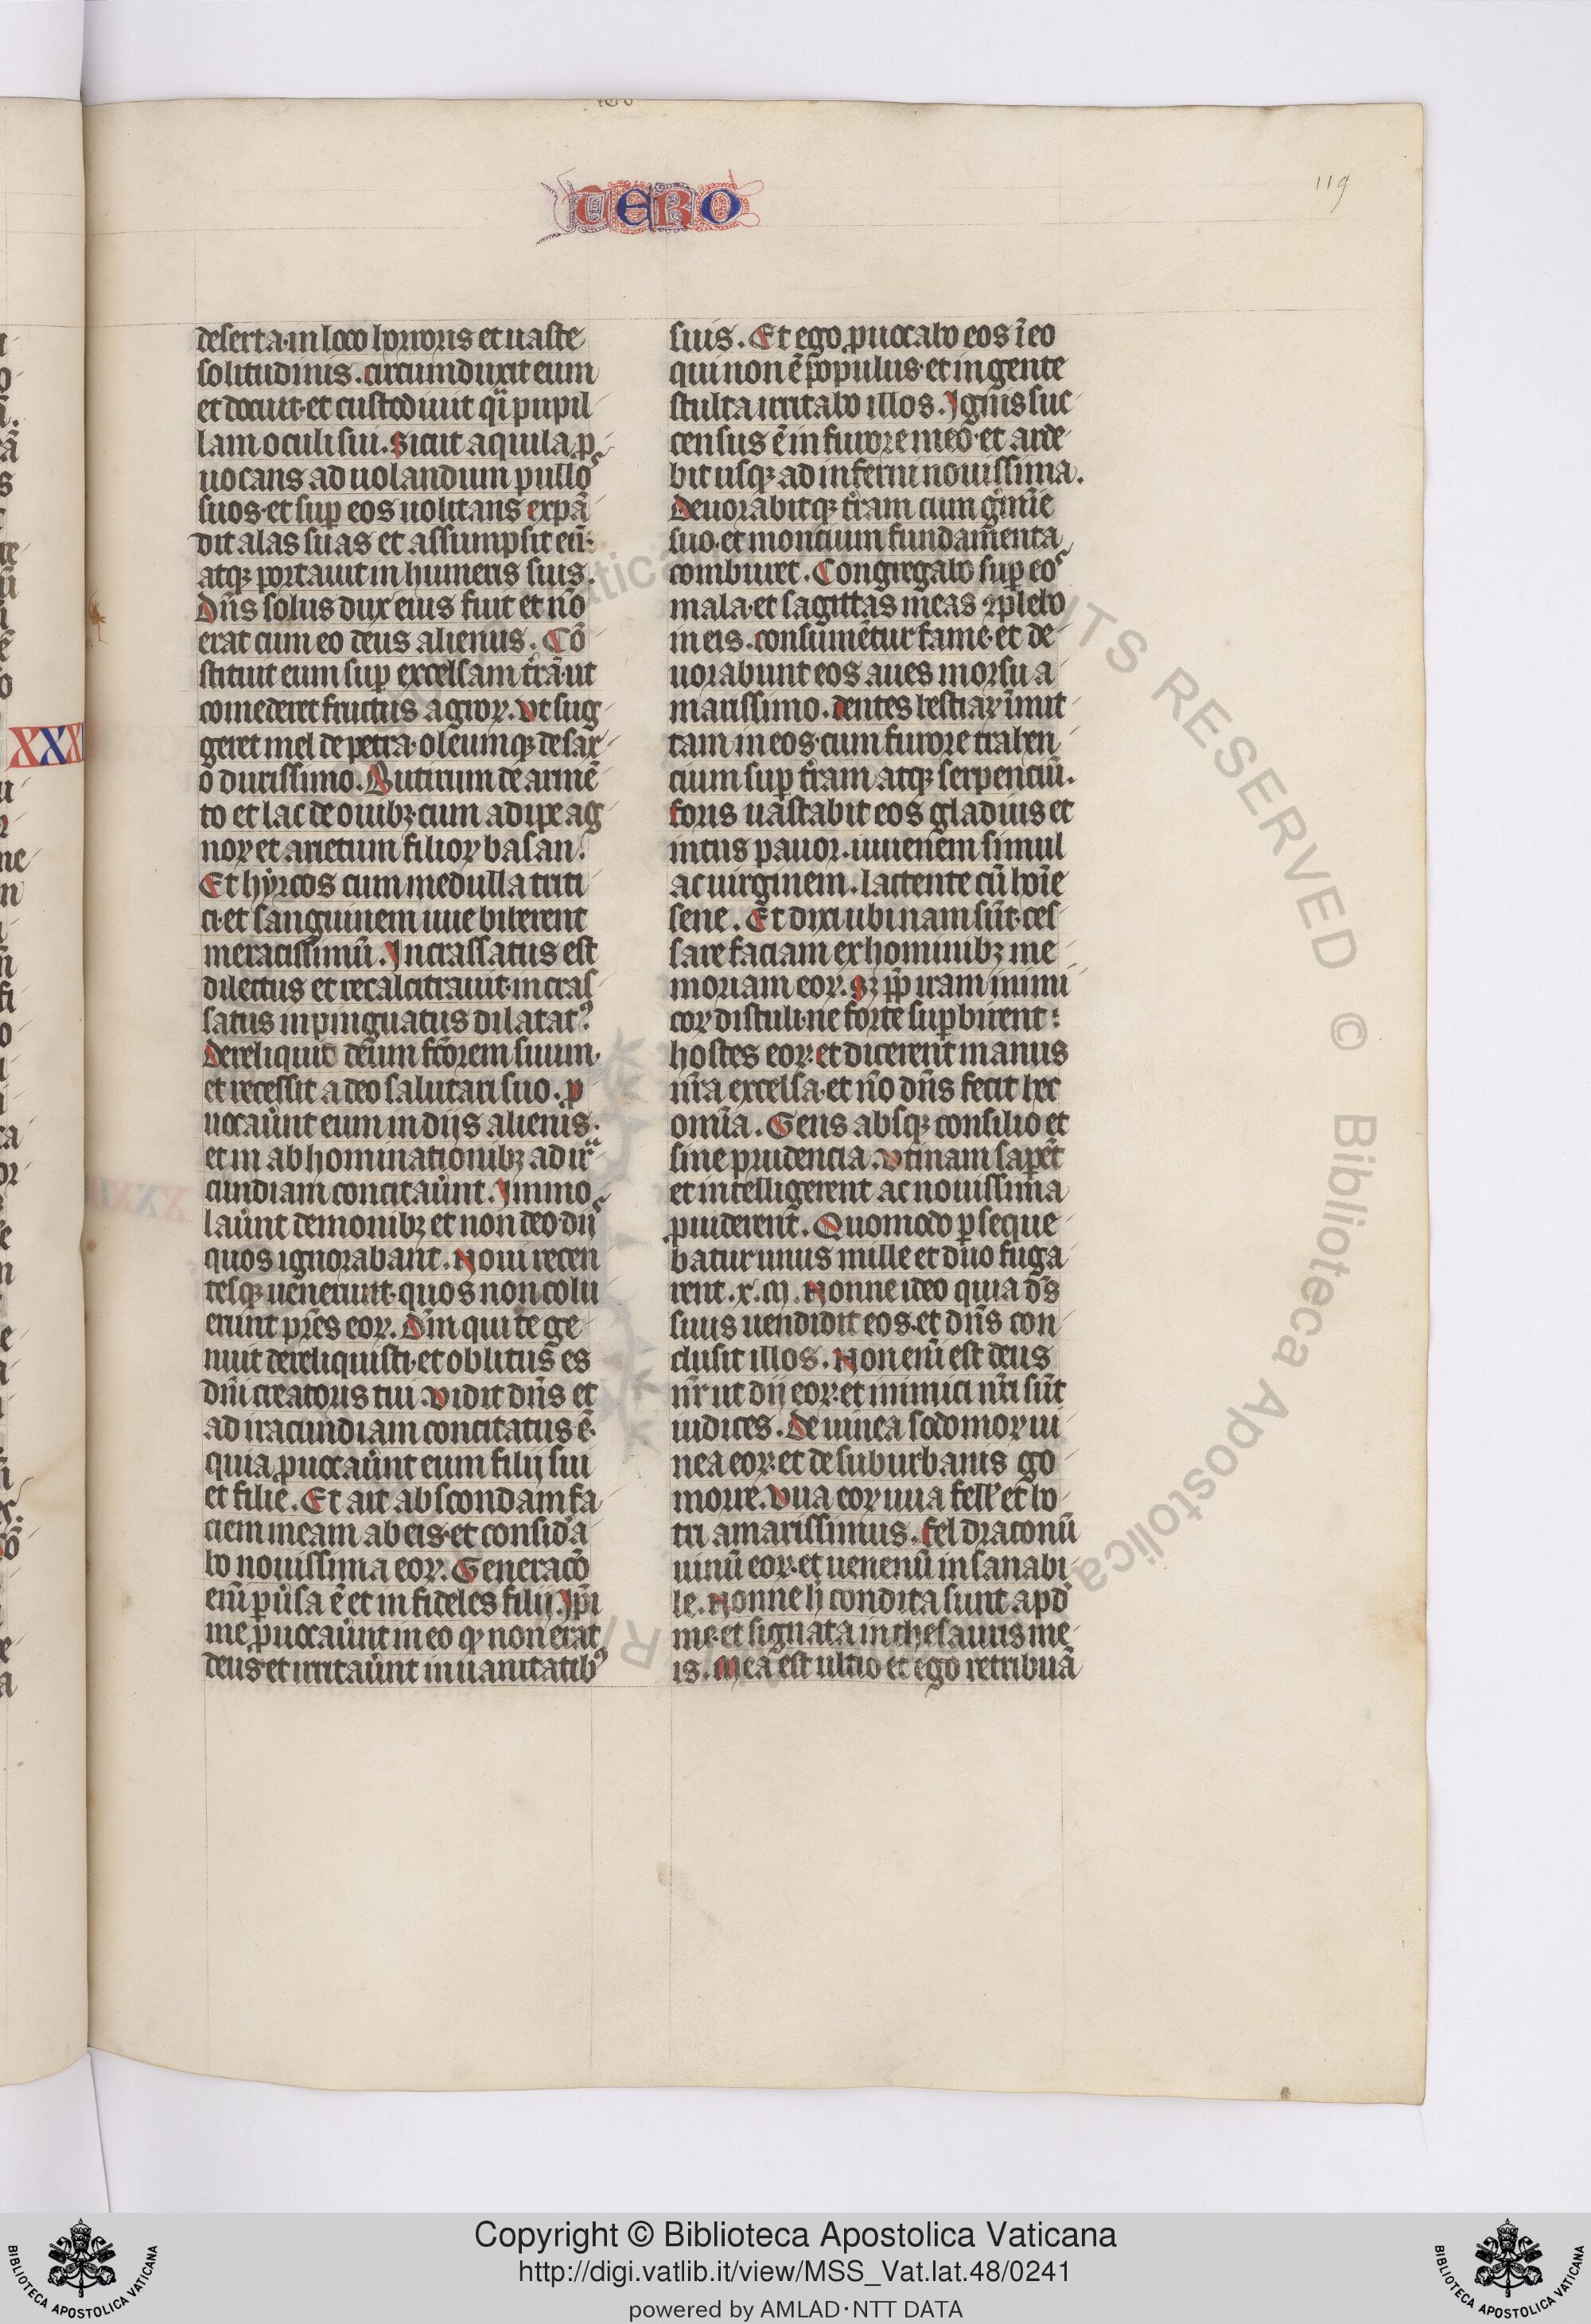 TERO
119
deserta in loco horroris et uaste
solitudinis. circumduxit eum
et docuit·et custodiuit q̈i pupil
lam oculi sui. Sicut aquila ꝓ
uocans ad uolandum pullos
suos·et suꝑ eos uolitans expā
dit alas suas et assumpsit eū·
atqꝫ portauit in humeris suis.
Dn̄s solus dux eius fuit et nō
erat cum eo deus alienus. Cō
stituit eum suꝑ excelsam tr̄ā·ut
comederet fructus agroꝝ. Vt sug
geret mel de petra·oleumqꝫ de sax
o durissimo. Butirum de armē
to et lac de ouibꝫ·cum adipe ag
noꝝ et arietum filioꝝ basan.
Et hyrcos cum medulla triti
ci·et sanguinem uue biberent
meracissimū. Incrassatus est
dilectus et recalcitrauit·incras
satus inpinguatus dilatatꝰ.
Dereliquid deum fc̄orem suum·
et recessit a deo salutari suo. ꝓ
uocau̇nt eum in dijs alienis·
et in abhominationibꝫ ad ira
cundiam concitau̇nt. Immo
lau̇nt demonibꝫ et non deo·dijs
quos ignorabant. Noui recen
tesqꝫ uenerunt·quos non colu
erunt pr̄es eoꝝ. Dm̄ qui te ge
nuit dereliquisti·et oblitus es
dn̄i creatoris tui. Vidit dn̄s et
ad iracundiam concitatus ē·
quia ꝓuocau̇nt eum filij sui
et filie. Et ait abscondam fa
ciem meam ab eis·et consid̓a
bo nouissima eoꝝ. Generacō
enī ꝑu̓sa ē et infideles filij. Ip̄i
me ꝓuocau̇nt in eo qͥ non erat
deus·et irritau̇nt in uanitatibꝰ
suis. Et ego ꝓuocabo eos ī eo
qui non ē populus·et in gente
stulta irritabo illos. Ignis suc
census ē in furore meo·et arde
bit usqꝫ ad inferni nouissima.
Deuorabitqꝫ tr̄am cum gm̄ie
suo·et moncium fundamenta
comburet. Congregabo suꝑ eos
mala·et sagittas meas ɔplebo
in eis. consumētur fame·et de
uorabunt eos aues morsu a
marissimo. dentes bestiaꝝ īmit
tam in eos·cum furore trahen
cium suꝑ tr̄am atqꝫ serpenciū.
foris uastabit eos gladius et
intus pauor. iuuenem simul
ac uirginem. lactente cū hoīe
sene. Et dixi ubinam sūt·ces
sare faciam ex hominibꝫ me
moriam eoꝝ. Sꝫ ꝓp̄ iram inimi
coꝝ distuli·ne forte suꝑbirent
hostes eoꝝ·et dicerent manus
nr̄a excelsa·et nō dn̄s fecit hec
omīa. Gens absqꝫ consilio et
sine prudencia. Vtinam saperēt
et intelligerent ac nouissima
ꝓuiderent. Quomodo ꝑseque
batur unus mille et duo fuga
rent .x. m̄. Nonne ideo quia ds̄
suus uendidit eos·et dn̄s con
clusit illos. Non enī est deus
nr̄ ut dij eoꝝ·et inimici nr̄i sūt
iudices. De uinea sodomoꝝ ui
nea eoꝝ·et de suburbanis go
morre. Vua eoꝝ uua fell̓ et bo
tri amarissimus. fel draconū
uinū eoꝝ·et uenenū insanabi
le. Nonne h̄ condita sunt apd̓
me·et signata in thesauris me
is. Mea est ultio et ego retribuā
ALL RIGHTS RESERVED © Biblioteca Apostolica
BIBLIOTECA APOSTOLICA VATICANA
Copyright © Biblioteca Apostolica Vaticana
http://digi.vatlib.it/view/MSS_Vat.lat.48/0241
powered by AMLAD·NTT DATA
BIBLIOTECA APOSTOLICA VATICANA